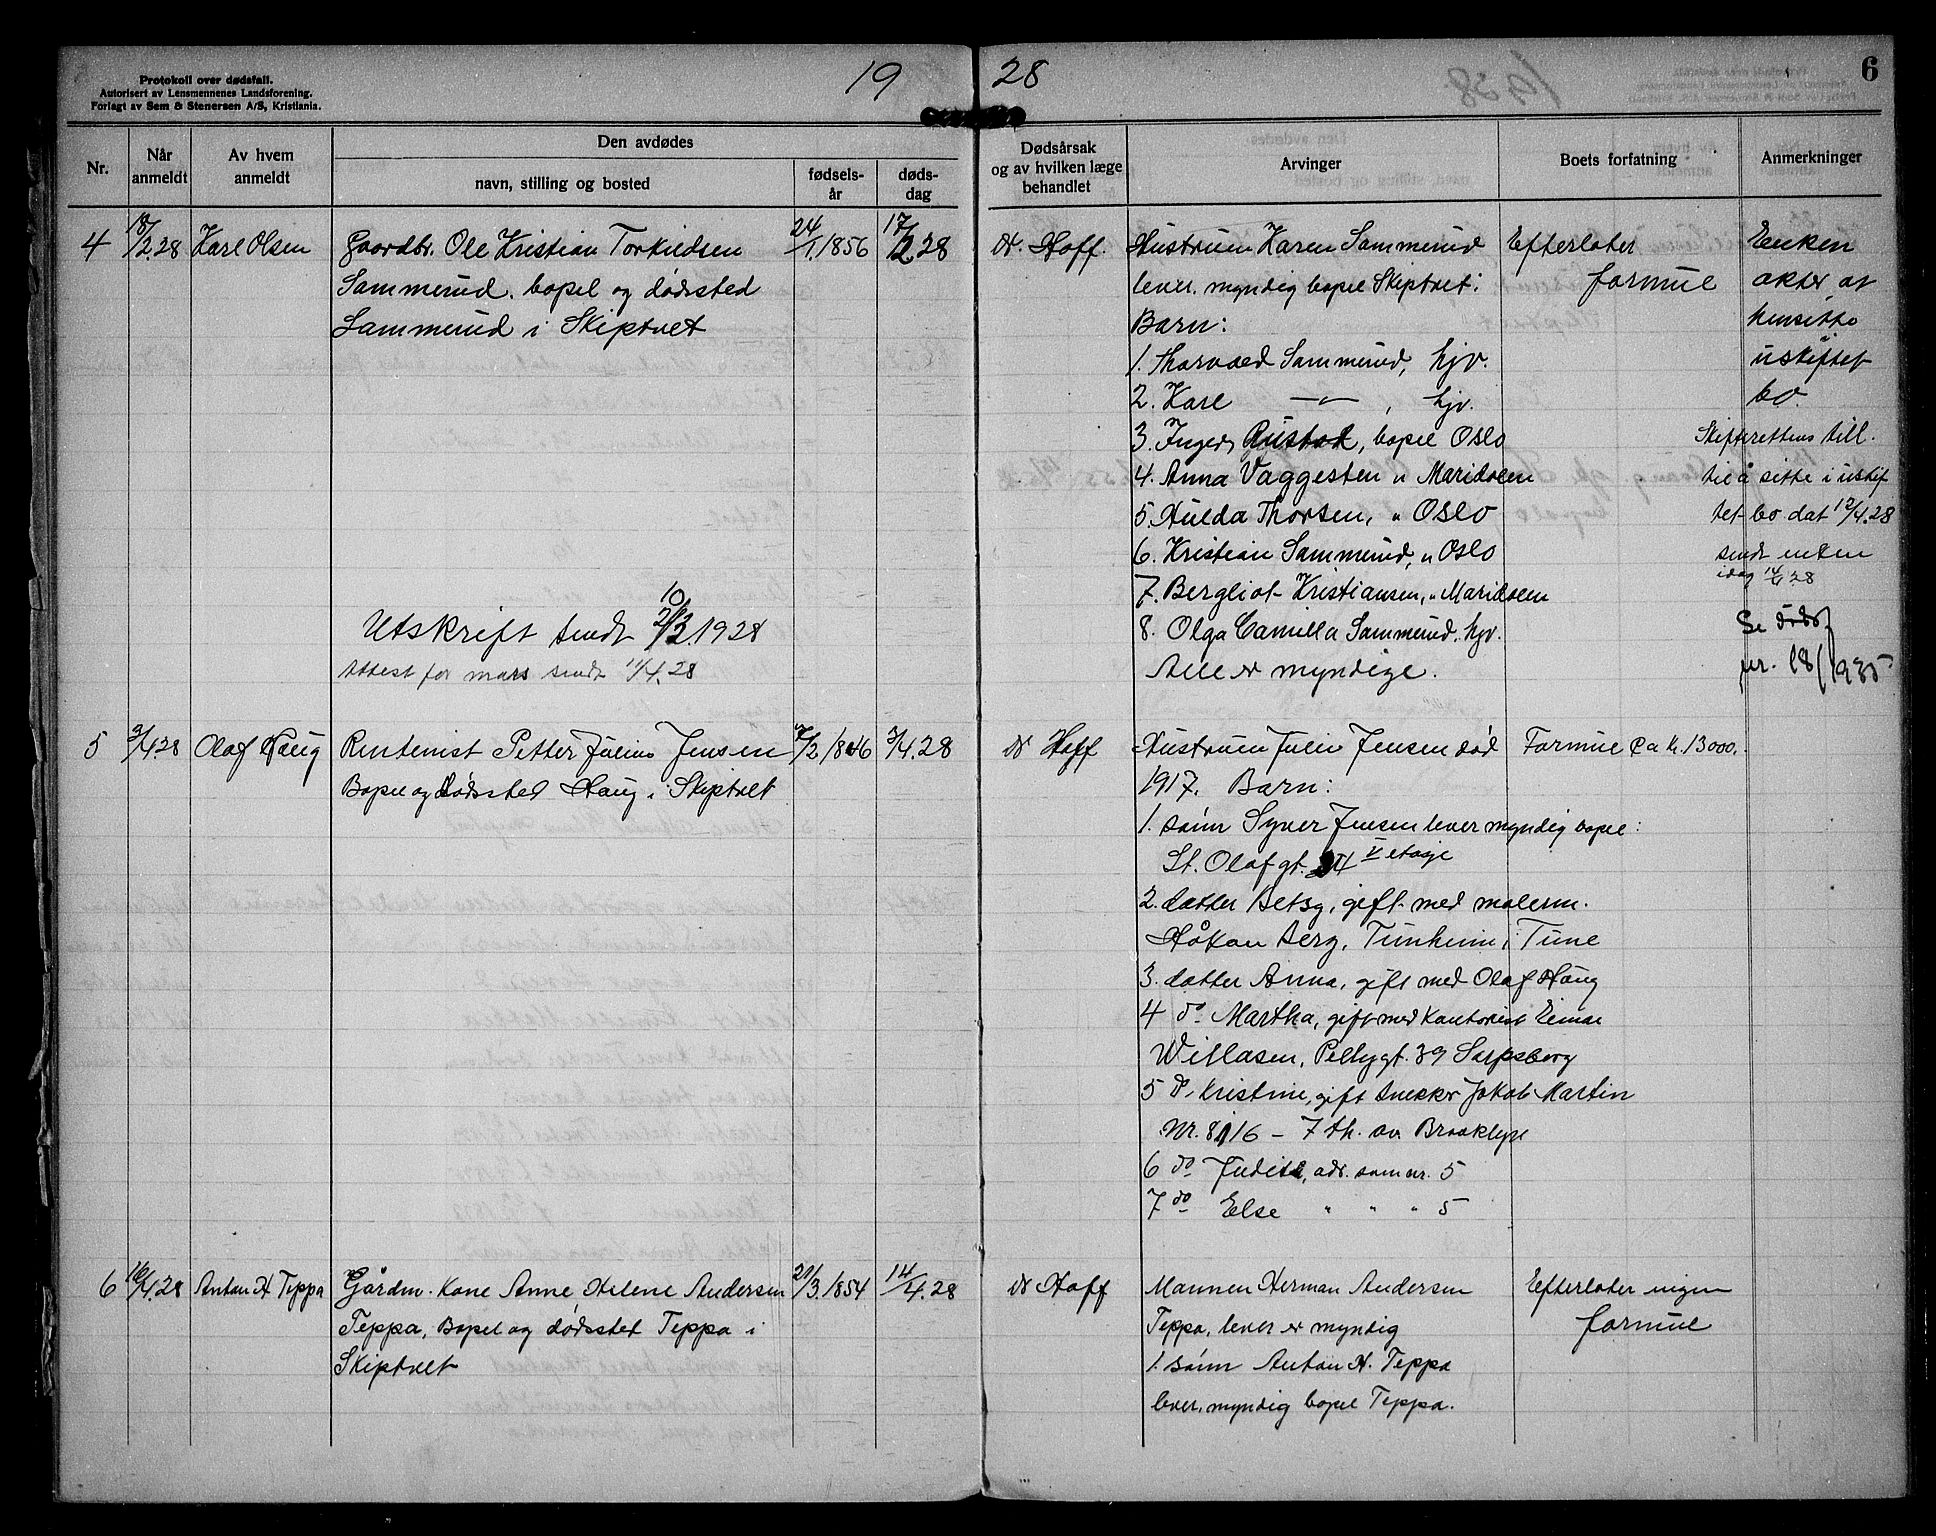 Protokoll over dødsfall.
Autorisert av Lensmennenes Landsforening.
Forlagt av Sem & Stenersen A/S, Kristiania.
19 28
6
Nr.
Når anmeldt
Av hvem anmeldt
Den avdødes
navn, stilling og bosted
fødsels-år
døds-dag
Dødsårsak og av hvilken læge behandlet
Arvinger
Boets forfatning
Anmerkninger
4 18/2.28 Karl Olsen
Gaardbr. Ole Kristian Torkildsen
Sammerud. bopel og dødssted
Sammerud i Skiptvet
24/1.1856 17/2.28
dr. Hoff.
Hustruen Karen Sammerud
lever. myndig bopel Skiptvet:
Barn:
1. Thorvald Sammerud, hjv.
2. Karl —"— , hjv.
3. Inger, bopel Oslo
4. Anna Vaggesten " Maridalen
5. Hulda Thorsen, " Oslo
6. Kristian Sammerud, " Oslo
7. Bergliot Kristiansen, " Maridalen
8. Olga Camilla Sammerud, hjv.
Alle er myndige.
Efterlater
formue
Enken
akter at
hensitte
i uskiftet
bo.
Skifterettens till.
til å sitte i uskif
tet bo dat 12/4.28
sendt enken
idag 14/4 28
Se dødsf
nr. 18/1935
Utskrift sendt 10/3.1928
Attest for mars sendt 11/4.28
5 3/4.28 Olaf Haug
Rentenist Petter Julius Jensen
Bopel og dødssted Haug i Skiptvet
7/2 1846 3/4.28
dr Hoff
Hustruen Julie Jensen død
1917. Barn:
1. sønn Syver Jensen lever myndig bopel:
St. Olafgt. V etasje
2. datter Betsy, gift med malerm.
Håkon Berg, Tunheim i Tune
3. datter Anna, gift med Olaf Haug
4 do Martha, gift med Kontorist Einar
Willasen, Pellygt. 39 Sarpsborg
5 do Kristine, gift snekker Jakob Martin
Nr. 8116 – 7 th. av Brooklyn
6 do Judith, adr. som nr. 5
7 do Else " " " 5
Formue ca kr. 13000.
6 16/4.28 Anton H Teppa
Gårdm. Kone Anne Helene Andersen
Teppa, Bopel og dødsstet Teppa i
Skiptvet
21/3.1854 14/4.28
dr Hoff
Mannen Herman Andersen
Teppa, lever er myndig
1. sønn Anton H. Teppa
lever, myndig bopel Teppa.
Efterlater ingen
formue